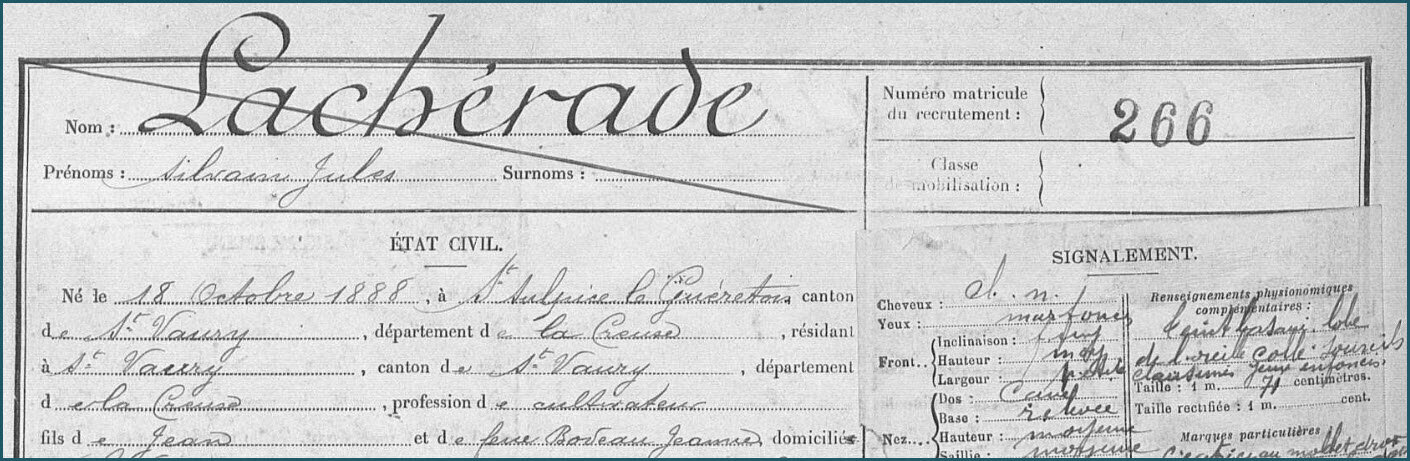 Nom : Lachérade
Prénoms : Silvain Jules Surnoms :
Numéro matricule
du recrutement : 266
Classe
de mobilisation :
ÉTAT CIVIL.
Né le 18 Octobre 1888, à St Sulpice le Guéretois canton
de St Vaury, département de la Creuse, résidant
à St Vaury, canton de St Vaury, département
de la Creuse, profession de cultivateur
fils de Jean et de feue Bodeau Jeanne domiciliés
SIGNALEMENT.
Cheveux : ch. n.
Yeux : marrons
Front Inclinaison :
Hauteur : moy
Largeur : petite
Nez Dos : cave
Base : relevée
Hauteur : moyenne
Saillie : moyenne
Renseignements physionomiques
complémentaires :
teint basané lobe
de l'oreille collé sourcils
clairsemés yeux enfoncés
Taille : 1 m. 71 centimètres.
Taille rectifiée : 1 m. cent.
Marques particulières
cicatrice au mollet droit